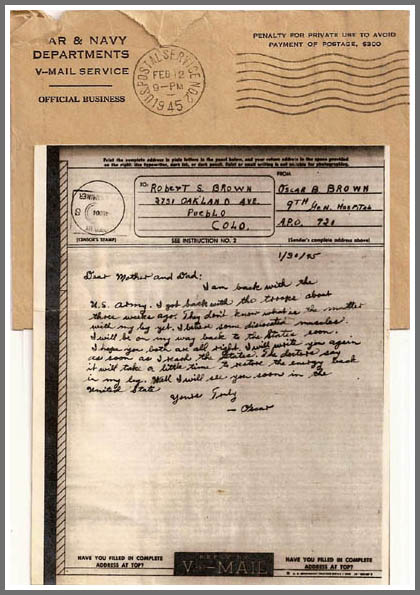 AR & NAVY
DEPARTMENTS
V-MAIL SERVICE
OFFICIAL BUSINESS
U.S. POSTAL SERVICE NO. 2
FEB 12
9-PM
1945
PENALTY FOR PRIVATE USE TO AVOID
PAYMENT OF POSTAGE, $300
Print the complete address in plain letters in the panel below, and your return address in the space provided
on the right. Use typewriter, dark ink, or dark pencil. Faint or small writing is not suitable for photographing.
TO:
ROBERT S. BROWN
3731 OAKLAND AVE.
PUEBLO
COLO.
FROM
OSCAR B BROWN
9TH GEN. HOSPITAL
A.P.O. 721
(CENSOR'S STAMP)
SEE INSTRUCTION NO. 2
(Sender's complete address above)
1/30/45
Dear Mother and Dad:
I am back with the
U.S. Army. I got back with the troops about
three weeks ago. They don't know what is the matter
with my leg yet. I believe some dislocated muscles.
I will be on my way back to the States soon.
I hope you both are all right. I will write you again
as soon as I reach the States. The doctors say
it will take a little time to restore the energy back
in my leg. Well I will see you soon in the
United State
Yours Truly
- Oscar
HAVE YOU FILLED IN COMPLETE
ADDRESS AT TOP?
REPLY BY
V-MAIL
HAVE YOU FILLED IN COMPLETE
ADDRESS AT TOP?